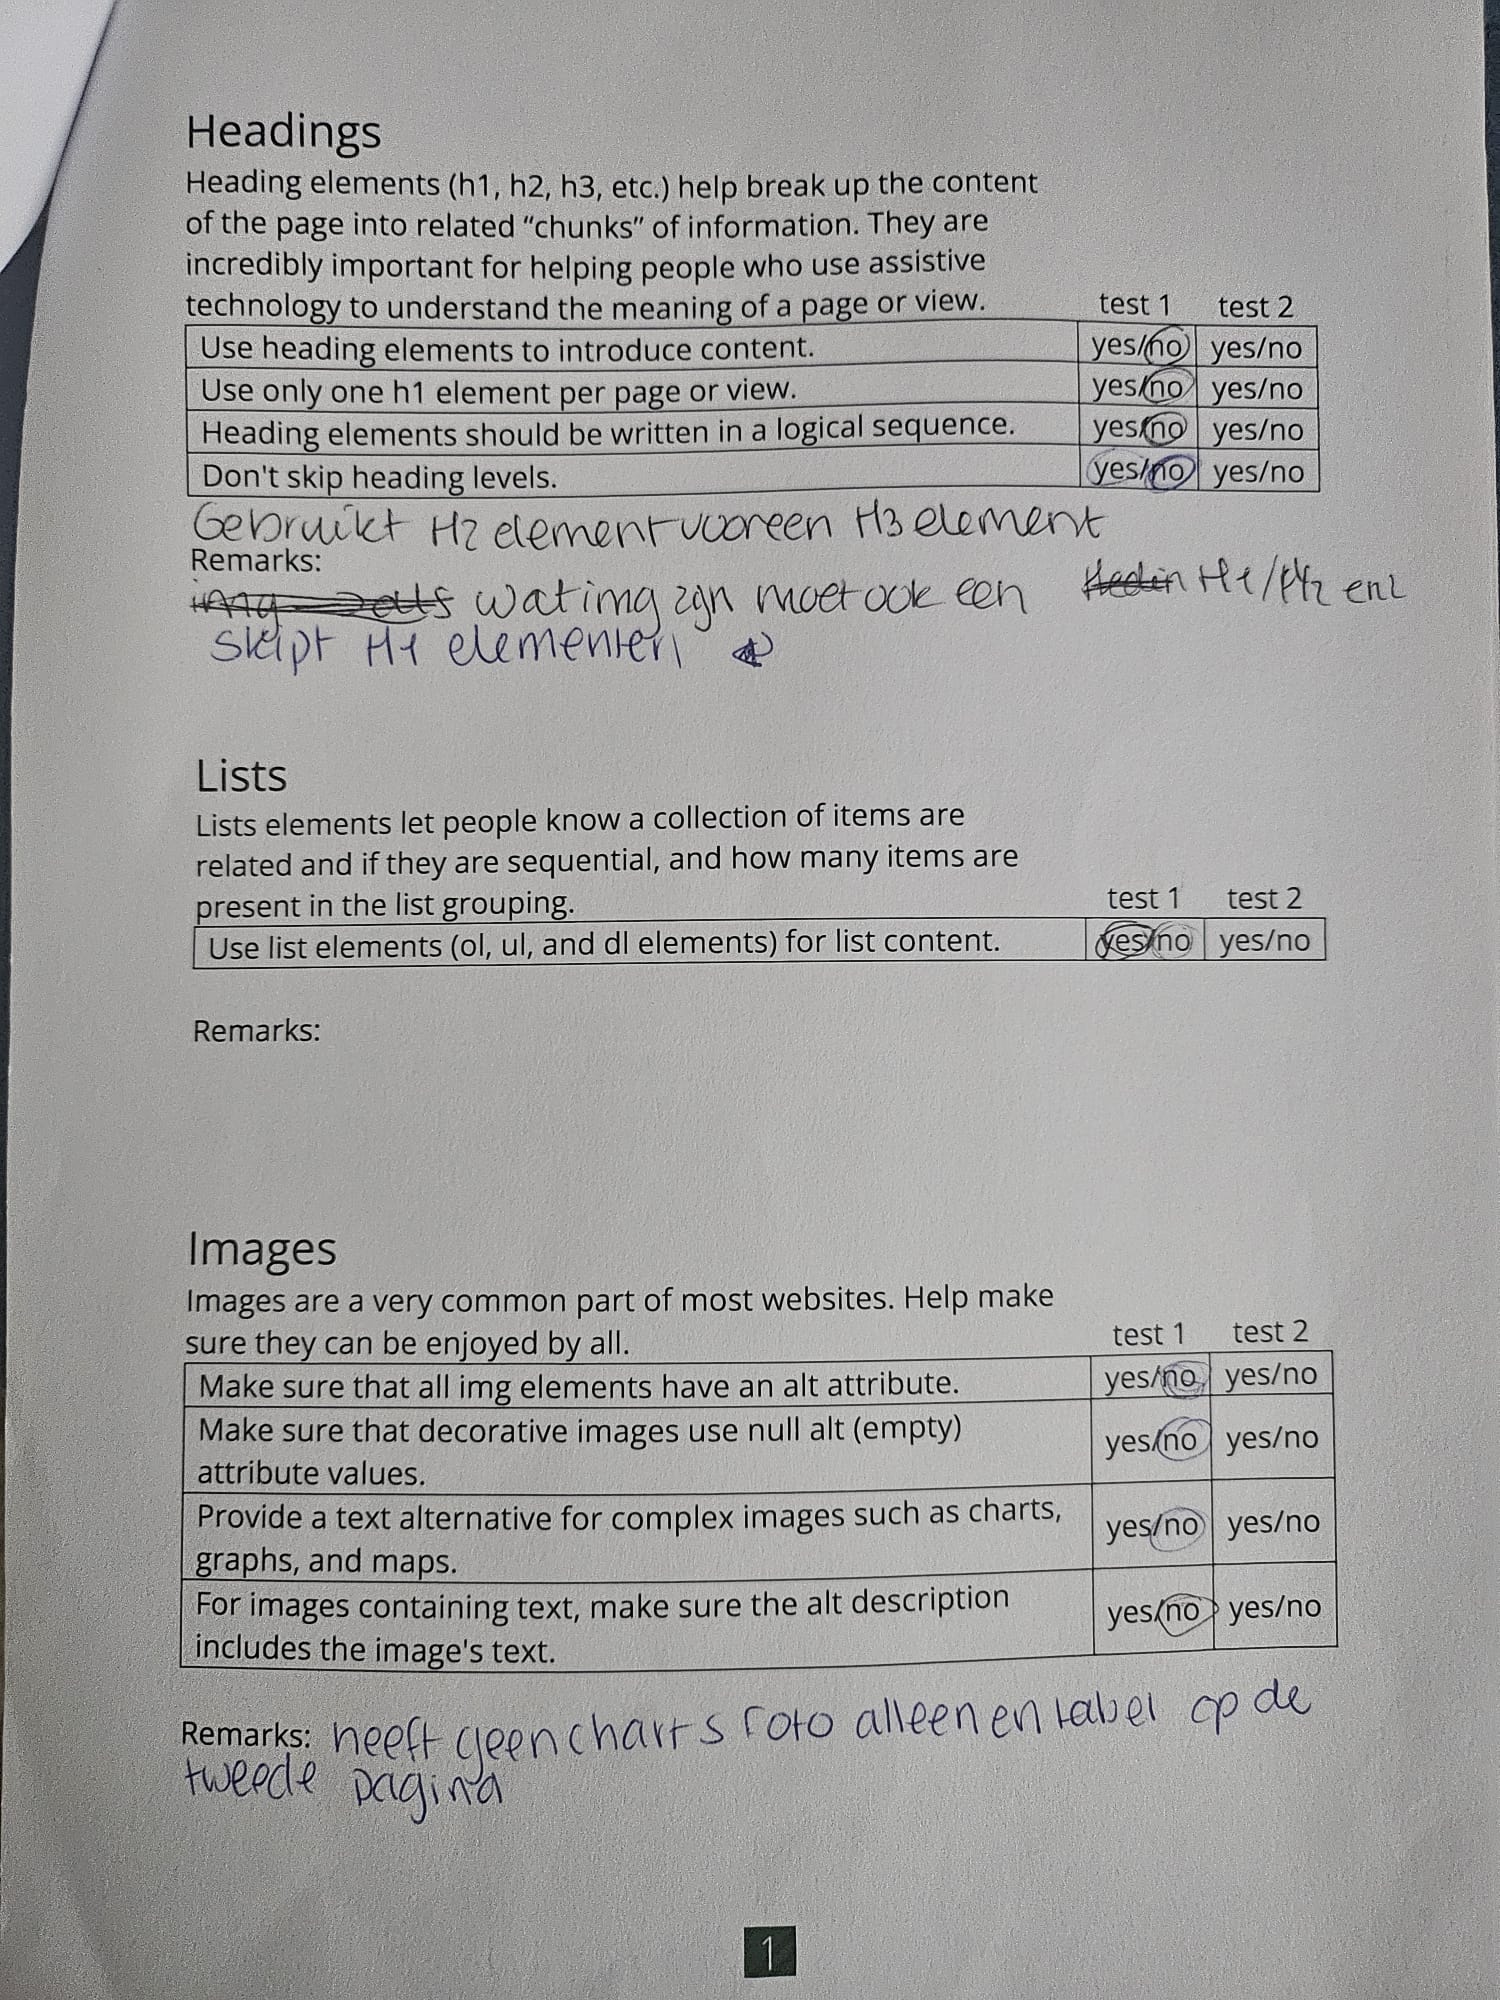 Headings
Heading elements (h1, h2, h3, etc.) help break up the content
of the page into related “chunks” of information. They are
incredibly important for helping people who use assistive
technology to understand the meaning of a page or view. test 1 test 2
Use heading elements to introduce content. yes/no yes/no
Use only one h1 element per page or view. yes/no yes/no
Heading elements should be written in a logical sequence. yes/no yes/no
Don't skip heading levels. yes/no yes/no
Gebruikt H2 element voor een H3 element
Remarks:
wat img zijn moet ook een H1/H2 enz
skipt H1 elementen
Lists
Lists elements let people know a collection of items are
related and if they are sequential, and how many items are
present in the list grouping. test 1 test 2
Use list elements (ol, ul, and dl elements) for list content. yes/no yes/no
Remarks:
Images
Images are a very common part of most websites. Help make
sure they can be enjoyed by all. test 1 test 2
Make sure that all img elements have an alt attribute. yes/no yes/no
Make sure that decorative images use null alt (empty)
attribute values. yes/no yes/no
Provide a text alternative for complex images such as charts,
graphs, and maps. yes/no yes/no
For images containing text, make sure the alt description
includes the image's text. yes/no yes/no
Remarks: heeft geen charts foto alleen en tabel op de
tweede pagina
1